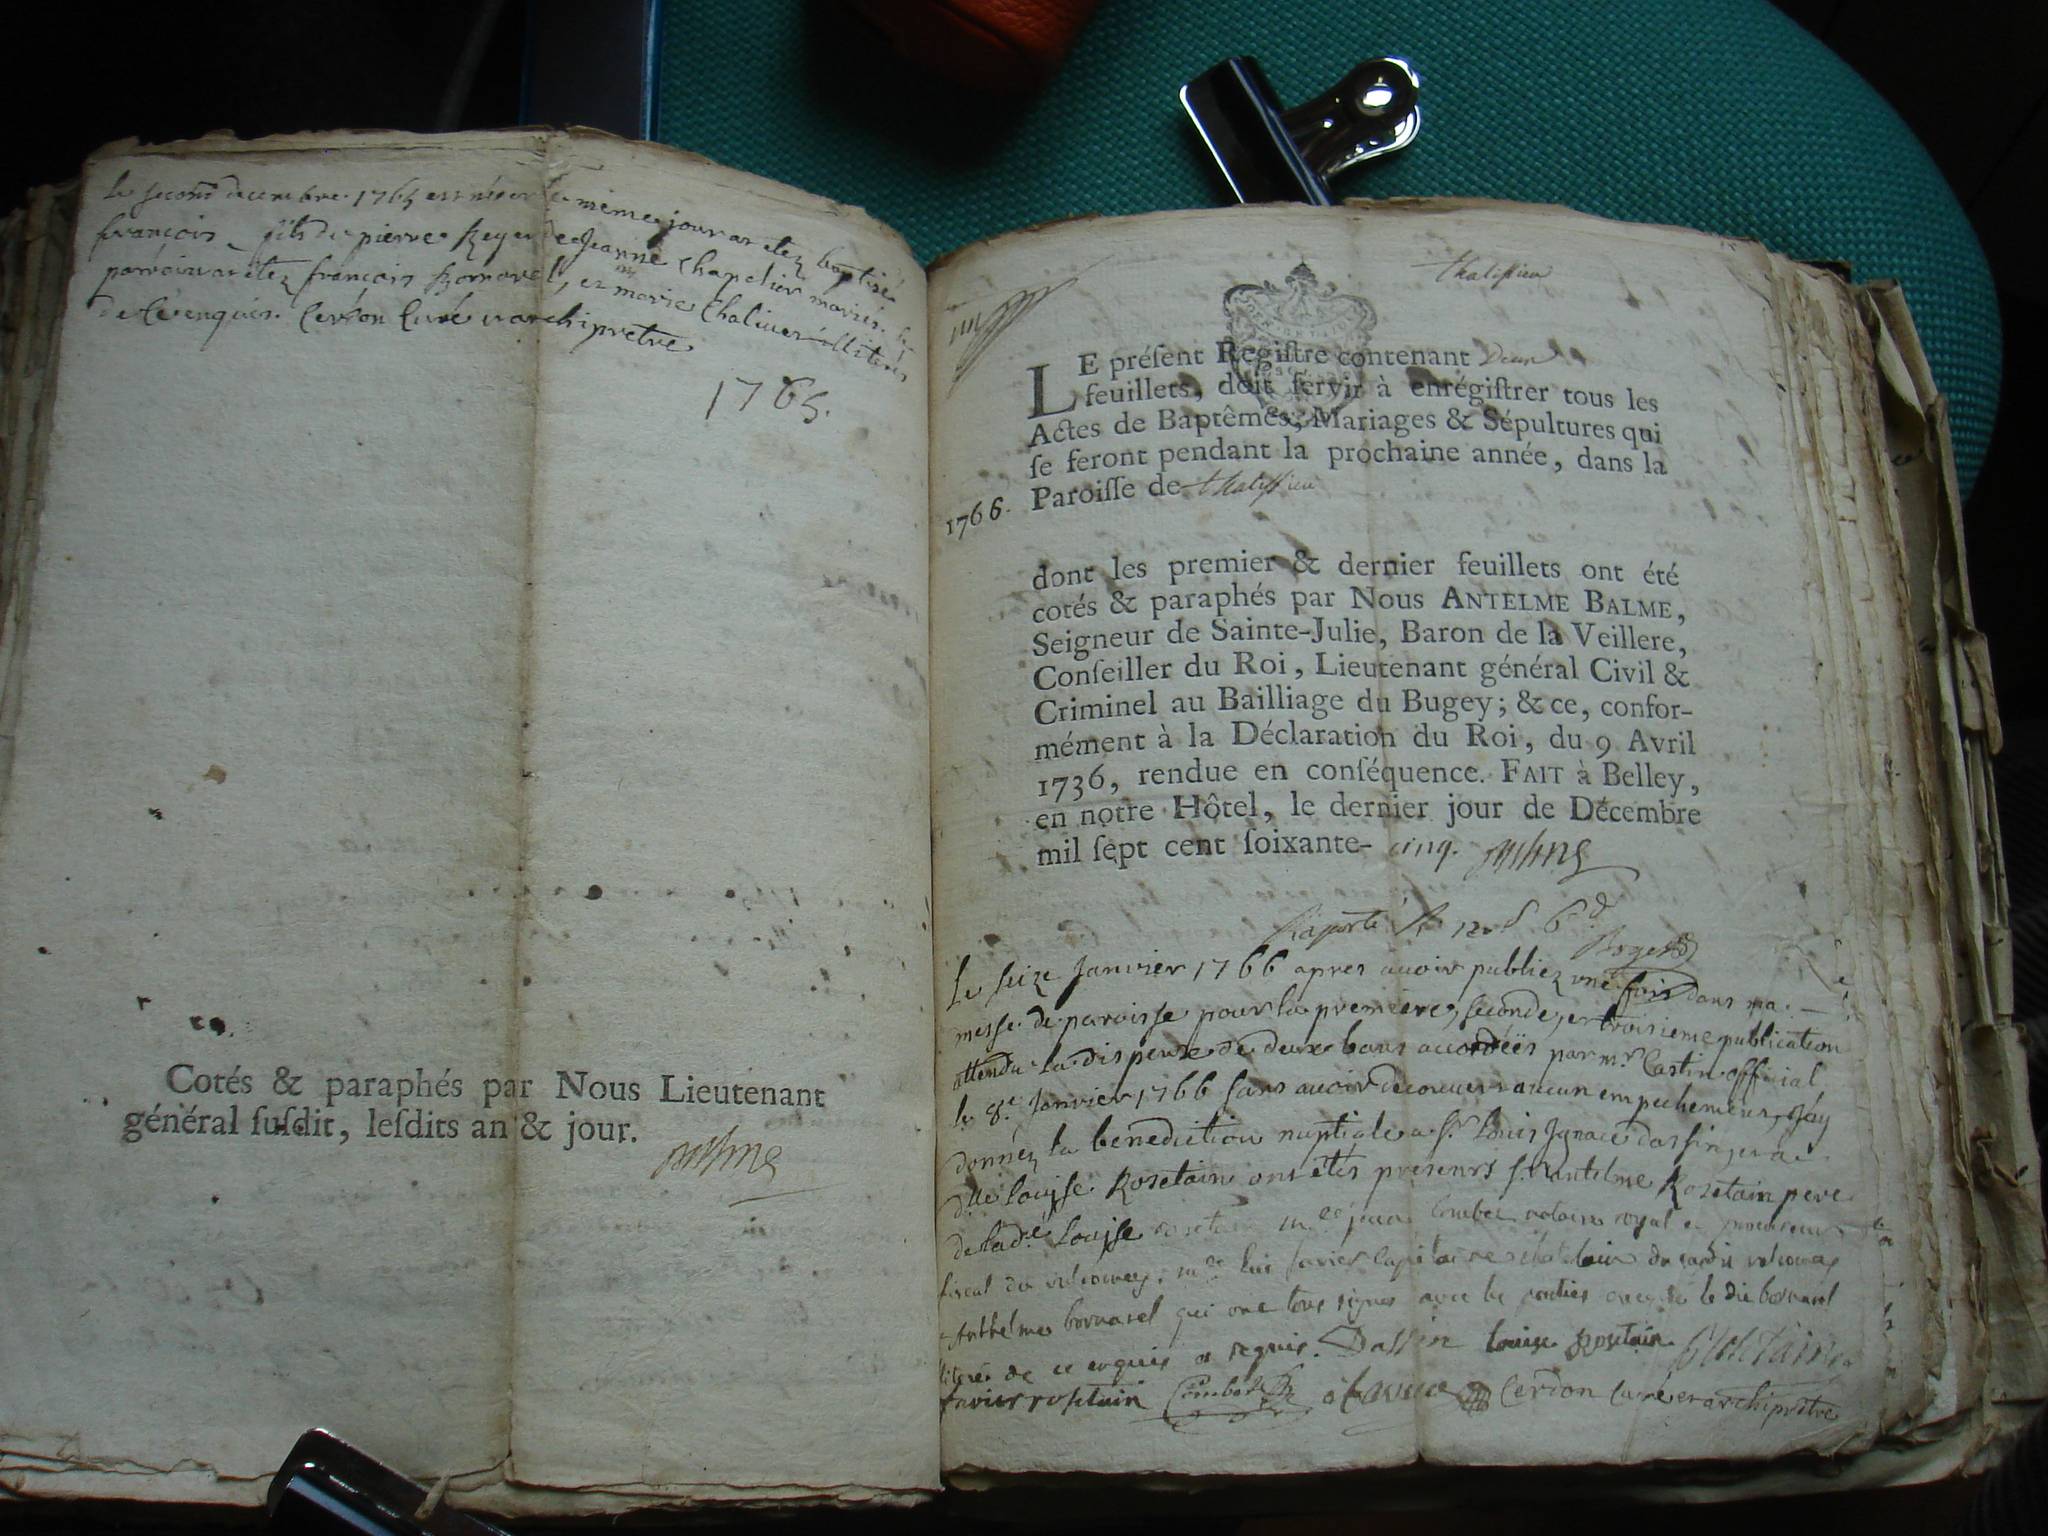 le second decembre 1765 est né et le même jour a etez baptisé
françois fils de pierre Reyer et de Jeanne Chapelier mariés. le
parrain a etez françois Bornarel, et marie Chaliver illiterés
de ce enquis. Cerdon Curé et archipretre
1765.
Cotés & paraphés par Nous Lieutenant
général ſuſdit, leſdits an & jour.
thalissieu
LE préſent Regiſtre contenant Deux
feuillets, doit ſervir à enrégiſtrer tous les
Actes de Baptêmes, Mariages & Sépultures qui
ſe feront pendant la prochaine année, dans la
1766. Paroiſſe de thalissieu
dont les premier & dernier feuillets ont été
cotés & paraphés par Nous ANTELME BALME,
Seigneur de Sainte-Julie, Baron de la Veillere,
Conſeiller du Roi, Lieutenant général Civil &
Criminel au Bailliage du Bugey; & ce, confor-
mément à la Déclaration du Roi, du 9 Avril
1736, rendue en conſéquence. FAIT à Belley,
en notre Hôtel, le dernier jour de Décembre
mil ſept cent ſoixante- cinq.
le seize Janvier 1766 apres avoir publiez une fois dans ma
messe de paroisse pour la premiere, seconde, et troisieme publication
attendu la dispense de deux bans accordéës par mr. Castin official
le 8e Janvier 1766 sans avoir decouvert aucun empechement, Jay
donnez la benediction nuptiale a Sr. Louis Ignace dassin et a
dlle louise Rosetain ont etés presents sr. antelme Rosetain pere
de lade. Louise rosetain me jean Combet notaire royal et procureur
fiscal du valromey, me Capitaine chatelain du valromey
Anthelme bornarel qui ont tous signés avec les parties excepté le dit bornarel
literé de ce enquis et requis. Dassin louise rosetain Rosetain
xavier rosetain Combet Cerdon Curé et archiprêtre